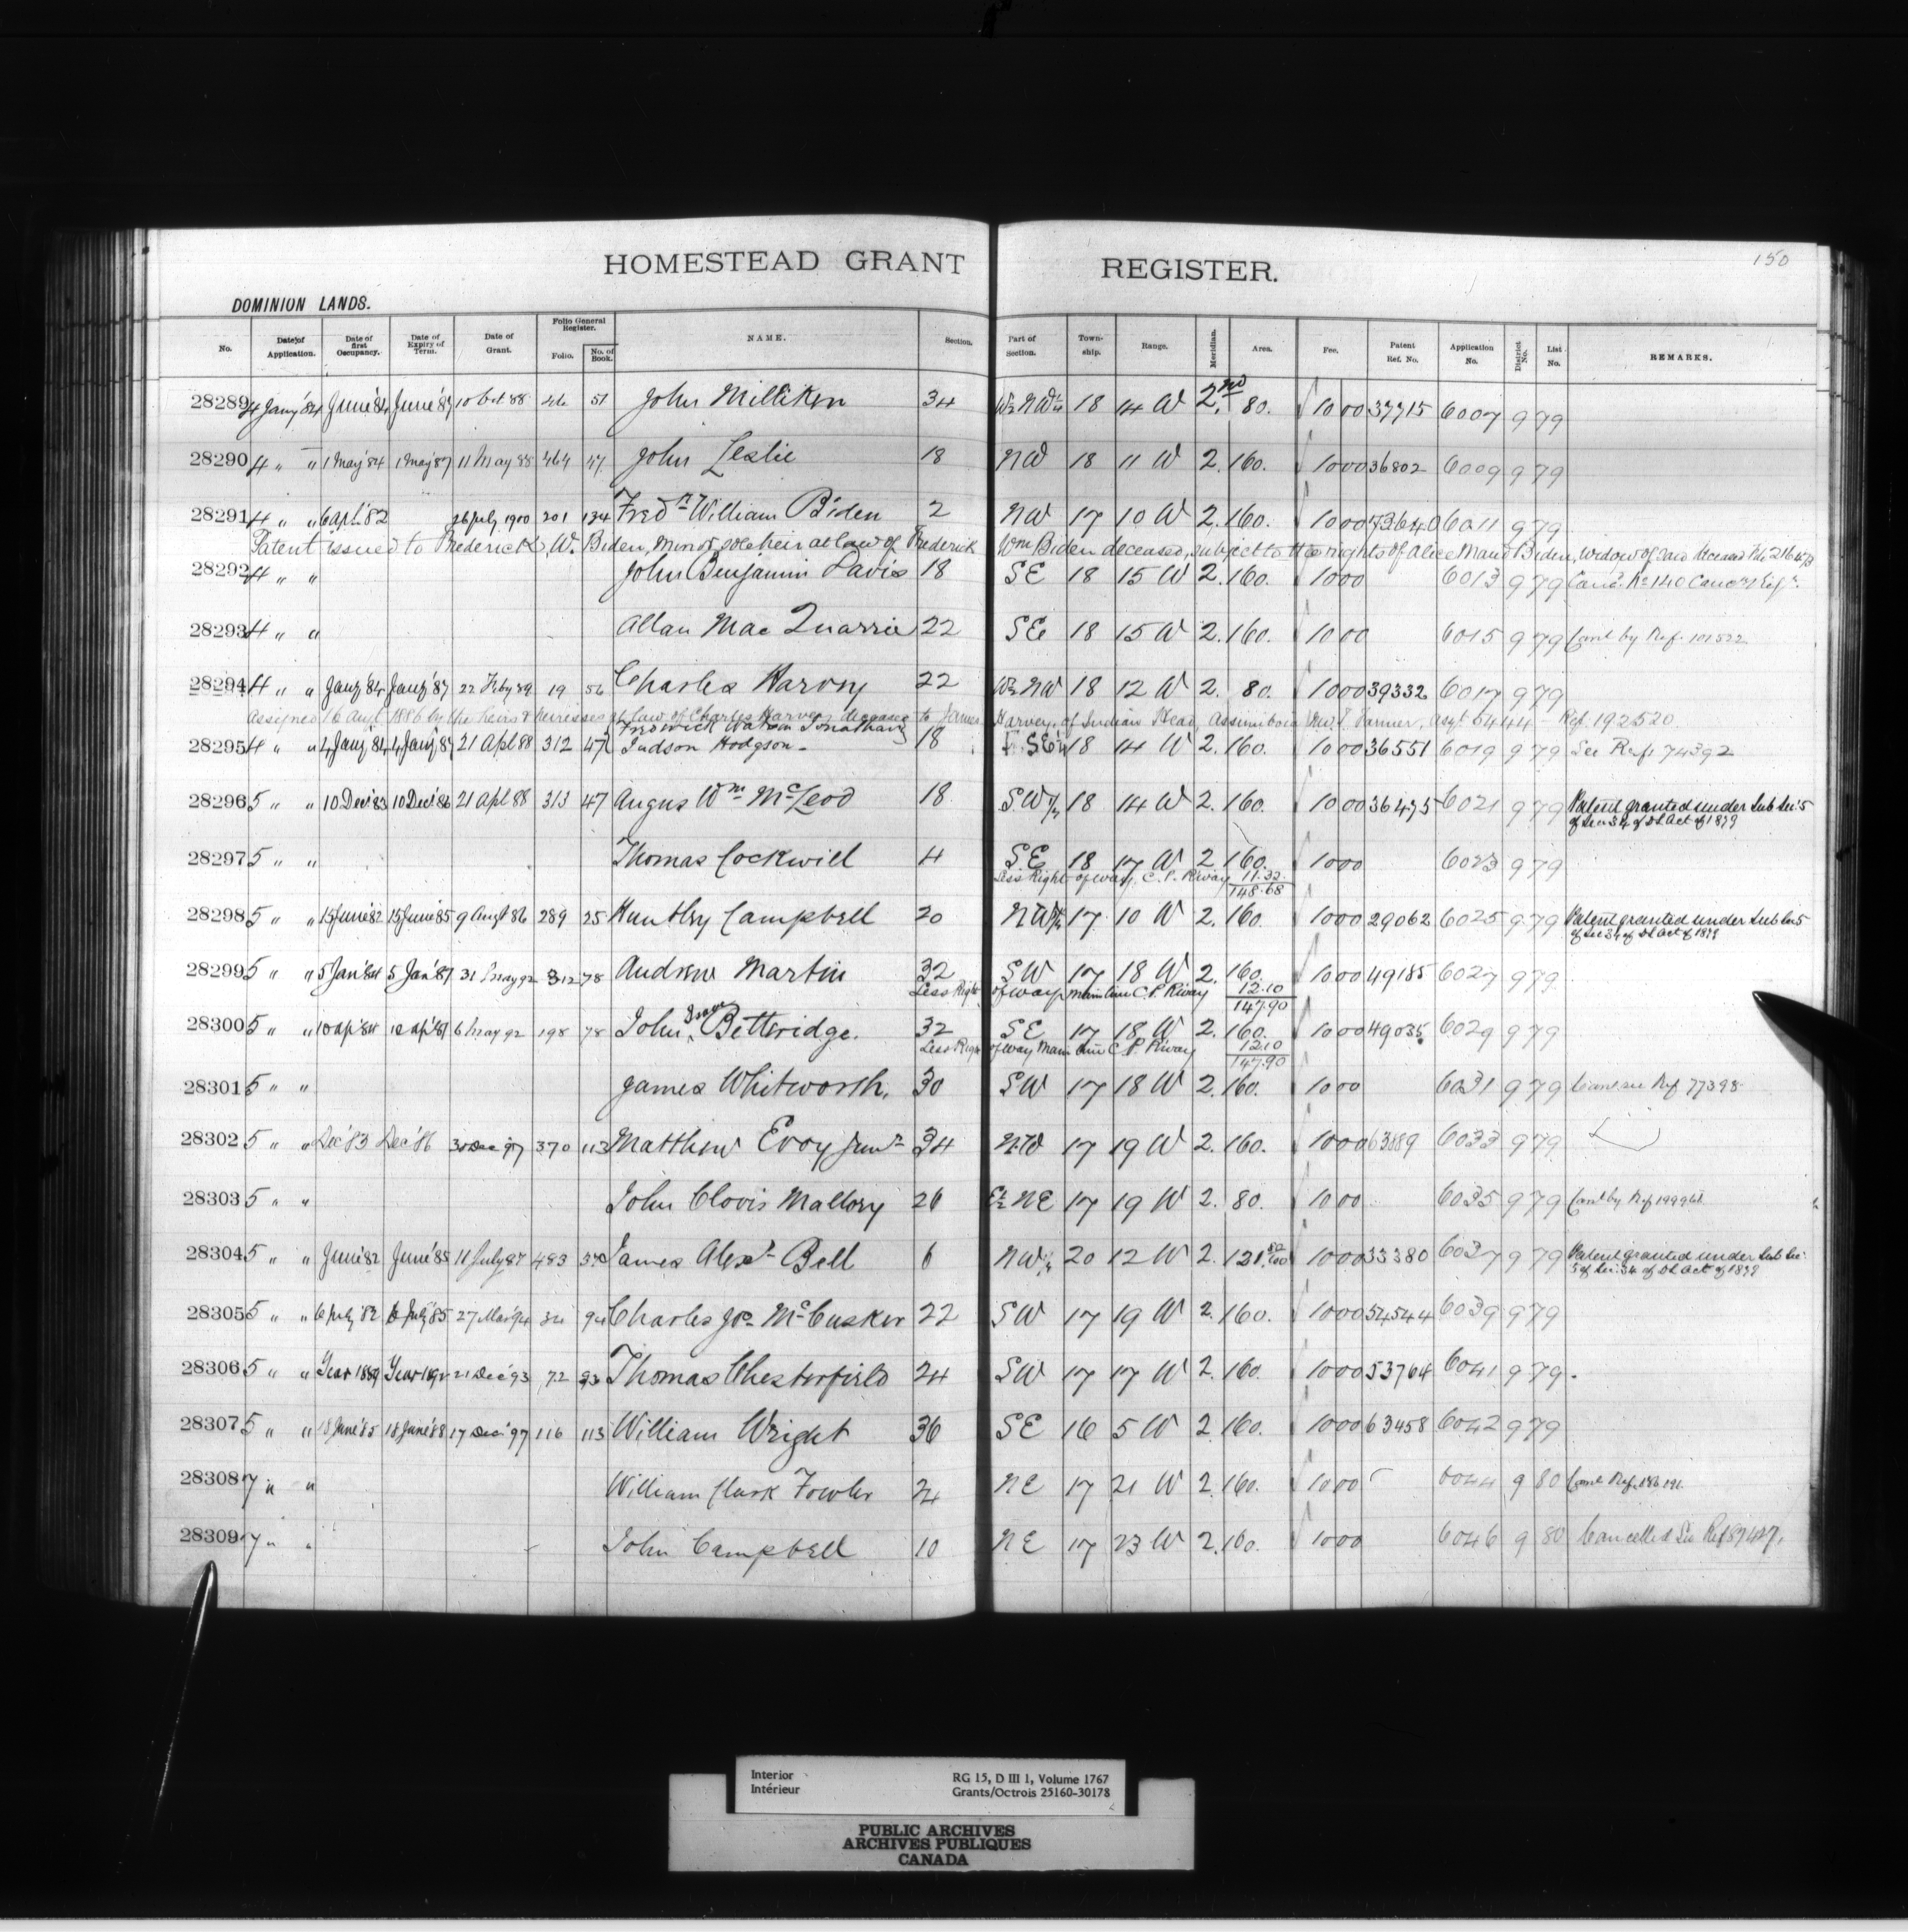 150
HOMESTEAD GRANT REGISTER.
DOMINION LANDS.
No. Date of Application. Date of first Occupancy. Date of Expiry of Term. Date of Grant. Folio General Register. Folio. No. of Book. NAME. Section. Part of Section. Township. Range. Meridian. Area. Fee. Patent Ref. No. Application No. District No. List No. REMARKS.
28289 4 Jany '84 June '84 June '87 10 Oct 88 46 51 John Milliken 34 W½ NW¼ 18 14 W 2nd 80. 10 00 37715 6007 9 79
28290 4 " " 1 May '84 1 May '87 11 May 88 464 47 John Leslie 18 NW 18 11 W 2. 160. 10 00 36802 6009 9 79
28291 4 " " 6 apl. '82 26 July 1900 201 134 Fredk William Biden 2 NW 17 10 W 2. 160. 10 00 73640 6011 9 79
Patent issued to Frederick W. Biden, Minor, sole heir at law of Frederick Wm Biden deceased, subject to the rights of Alice Maud Biden, widow of said deceased
28292 4 " " John Benjamin Davis 18 SE 18 15 W 2. 160. 10 00 6013 9 79 Canc. No 140
28293 4 " " Allan Mac Quarrie 22 SE 18 15 W 2. 160. 10 00 6015 9 79 Canc by Ref. 101522
28294 4 " " Jany '84 Jany '87 22 Feby 89 19 56 Charles Harvey 22 W½ NW 18 12 W 2. 80. 10 00 39332 6017 9 79
Assigned 16 Augt 1886 by the heirs & heiresses at law of Charles Harvey deceased to James Harvey, of Indian Head, Assiniboia N.W.T. Farmer, Asgt 5444 - Ref. 192520
Frederick Watson Jonathan
28295 4 " " 4 Jany 84 4 Jany 87 21 Apl 88 312 47 Judson Hodgson - 18 SE¼ 18 14 W 2. 160. 10 00 36551 6019 9 79 See Ref. 74392
28296 5 " " 10 Dec '83 10 Dec '86 21 Apl 88 313 47 Angus Wm McLeod 18 SW¼ 18 14 W 2. 160. 10 00 36475 6021 9 79 Patent granted under Sub Sec: 5
of Sec 34 of DL Act of 1879
28297 5 " " Thomas Cockwill 4 SE 18 17 W 2 160. 10 00 6023 9 79
Less Right of way, C. P. R'way 11.32
148.68
28298 5 " " 15 June '82 15 June '85 9 Augt 86 289 25 Huntley Campbell 20 NW¼ 17 10 W 2. 160. 10 00 29062 6025 9 79 Patent granted under Sub Sec 5
of Sec 34 of DL Act of 1879
28299 5 " " 5 Jan '84 5 Jan '87 31 May 92 312 78 Andrew Martin 32 SW 17 18 W 2. 160. 10 00 49185 6027 9 79
Less Right of way Main line C. P. R'way 12.10
147.90
28300 5 " " 10 ap '84 10 ap '87 6 May 92 198 78 John Betteridge. 32 SE 17 18 W 2. 160. 10 00 49035 6029 9 79
Less Right of way Main line C. P. R'way 12.10
147.90
28301 5 " " James Whitworth. 30 SW 17 18 W 2. 160. 10 00 6031 9 79 Canc see Ref 77398
28302 5 " " Dec '83 Dec '86 30 Dec 97 370 113 Matthew Evoy Junr 34 NW 17 19 W 2. 160. 10 00 63889 6033 9 79
28303 5 " " John Clovis Mallory 26 E½ NE 17 19 W 2. 80. 10 00 6035 9 79 Canc by Ref
28304 5 " " June '82 June '85 11 July 87 483 James Alexr Bell 6 NW¼ 20 12 W 2. 121 52/100 10 00 33380 6037 9 79 Patent granted under Sub Sec:
5 of Sec: 34 of DL Act of 1879
28305 5 " " 6 July '82 6 July '85 27 Mar 94 94 Charles Jos. McCusker 22 SW 17 19 W 2. 160. 10 00 54544 6039 9 79
28306 5 " " Year 1889 Year 1892 21 Dec '93 72 93 Thomas Chesterfield 24 SW 17 17 W 2. 160. 10 00 53764 6041 9 79.
28307 5 " " 18 June '85 18 June '88 17 Dec '97 116 113 William Wright 36 SE 16 5 W 2. 160. 10 00 63458 6042 9 79
28308 7 " " William Clark Fowler 24 NE 17 21 W 2. 160. 10 00 6044 9 80 Canc Ref. 186191
28309 7 " " John Campbell 10 NE 17 23 W 2. 160. 10 00 6046 9 80 Cancelled See Ref
Interior RG 15, D III 1, Volume 1767
Intérieur Grants/Octrois 25160-30178
PUBLIC ARCHIVES
ARCHIVES PUBLIQUES
CANADA